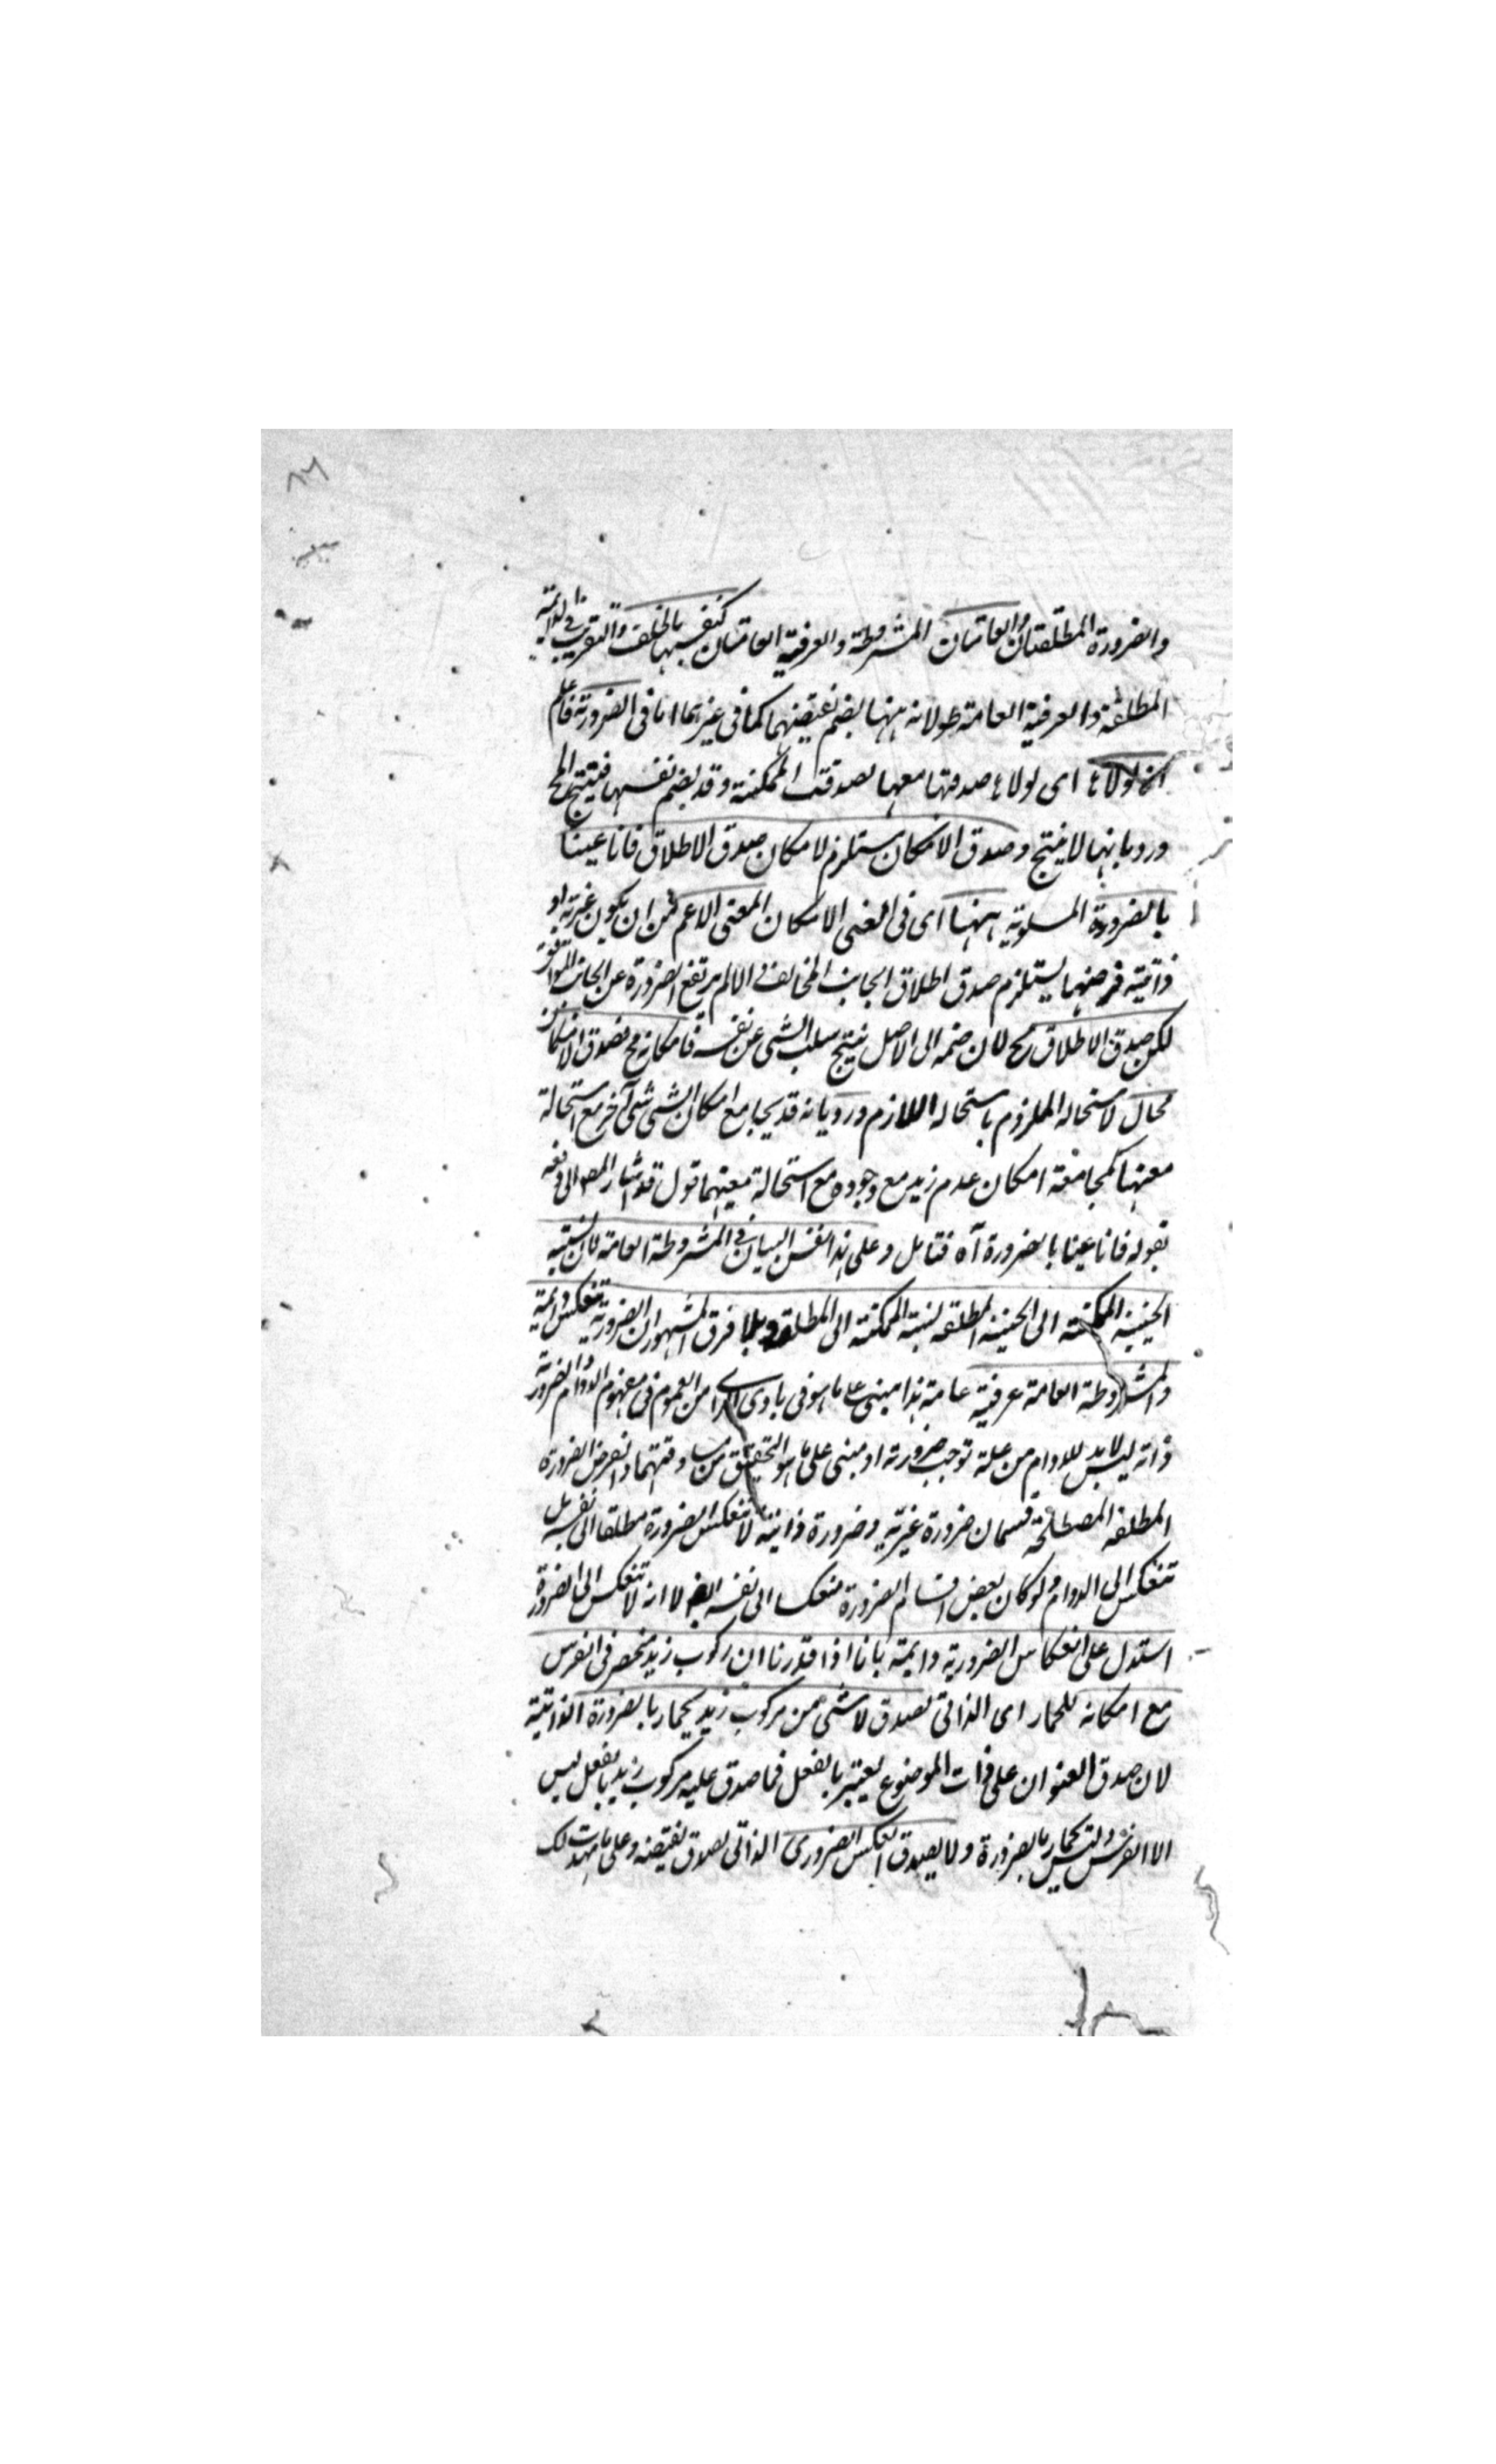 والضرورة المطلقتان والعامتان المشروطة والعرفية العامتان كنفسها بالخلف والتقريب في الدائمة
المطلقة والعرفية العامة طولانه ههنا بضم نقيضهما كما فى غيرهما اما فى الضرورة فاعلم
انه لولاه اى لولاه صدقها معها لصدقت الممكنة وقد يضم نفسها فينتج المح
ورد بانها لا ينتج وصدق الامكان يستلزم لامكان صدق الاطلاق فانا عينا
بالضرورة المسلوبة ههنا اى فى الامكان المعنى الاعم من ان يكون غيرية او
ذاتية فرضهما يستلزم صدق اطلاق الجانب المخالف والا لم يرتفع الضرورة عن الجانب الموافق
لكن صدق الاطلاق مح لان ضمه الى الاصل ينتج سلب الشى عن نفسه فامكانه مح فصدق الامكان
محال لاستحالة الملزوم باستحالة اللازم ورد بانه قد يجامع امكان الشى شى آخر مع استحالة
معيتها كمجامعة امكان عدم زيد مع وجوده مع استحالة معيتهما قول قد اشار المص الى دفعه
بقوله فانا عينا بالضرورة آه فتامل وعلى هذا نفس البيان فى المشروطة العامة لان نسبة
الحينية الممكنة الى الحينية المطلقة نسبة الممكنة الى المطلقة بلا فرق المشهور ان الضرورية تنعكس دائمة
والمشروطة العامة عرفية عامة هذا مبنى على ما هو فى بادى الراى من العموم فى مفهوم الدوام والضرورة
وانه ليس لا بد للدوام من علة توجب ضرورته او مبنى على ما هو التحقيق من مساوقتهما وانقراض الضرورة
المطلقة المصطلحة قسمان ضرورة غيرية وضرورة ذاتية لا تنعكس الضرورة مطلقا الى نفسه بل
تنعكس الى الدوام ولو كان بعض اقسام الضرورة منعكسا الى نفسه لا انه لا تنعكس الى الضرورة
استدل على انعكاس الضرورية دايمة بانا اذا قدرنا ان ركوب زيد منحصر فى الفرس
مع امكانه للحمار اى الذاتى لصدق لا شئ من مركوب زيد بحمار بالضرورة الذاتية
لان صدق العنوان على ذات الموضوع يعتبر بالفعل فما صدق عليه مركوب زيد بالفعل ليس
الا الفرس وليس بحمار بالضرورة ولا يصدق العكس الضرورى الذاتى لصدق نقيضه وعلى ما مهدت لك